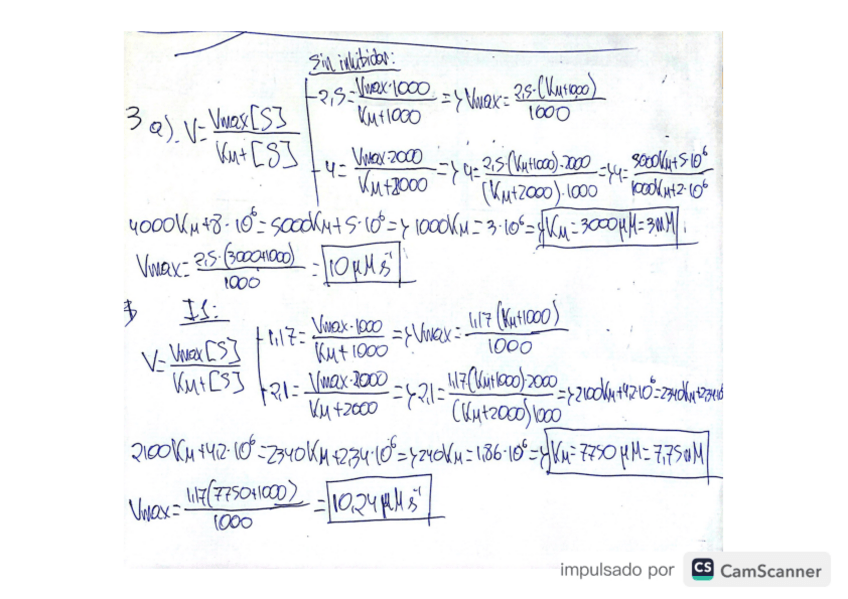 Sin inhibidor:
3 a). V = Vmax[S] / Km+[S]
- 2,5 = Vmax·1000 / Km+1000 => Vmax = 2,5·(Km+1000) / 1000
- 4 = Vmax·2000 / Km+2000 => 4 = 2,5·(Km+1000)·2000 / (Km+2000)·1000 => 4 = 5000Km+5·10⁶ / 1000Km+2·10⁶
4000Km+8·10⁶ = 5000Km+5·10⁶ => 1000Km = 3·10⁶ => Km = 3000 μM = 3mM
Vmax = 2,5·(3000+1000) / 1000 = 10 μM s⁻¹
I1:
V = Vmax[S] / Km+[S]
- 1,17 = Vmax·1000 / Km+1000 => Vmax = 1,17(Km+1000) / 1000
- 2,1 = Vmax·2000 / Km+2000 => 2,1 = 1,17·(Km+1000)·2000 / (Km+2000)1000 => 2100Km+4,2·10⁶ = 2340Km+2,34·10⁶
2100Km+4,2·10⁶ = 2340Km+2,34·10⁶ => 240Km = 1,86·10⁶ => Km = 7750 μM = 7,75mM
Vmax = 1,17(7750+1000) / 1000 = 10,24 μM s⁻¹
impulsado por CS CamScanner